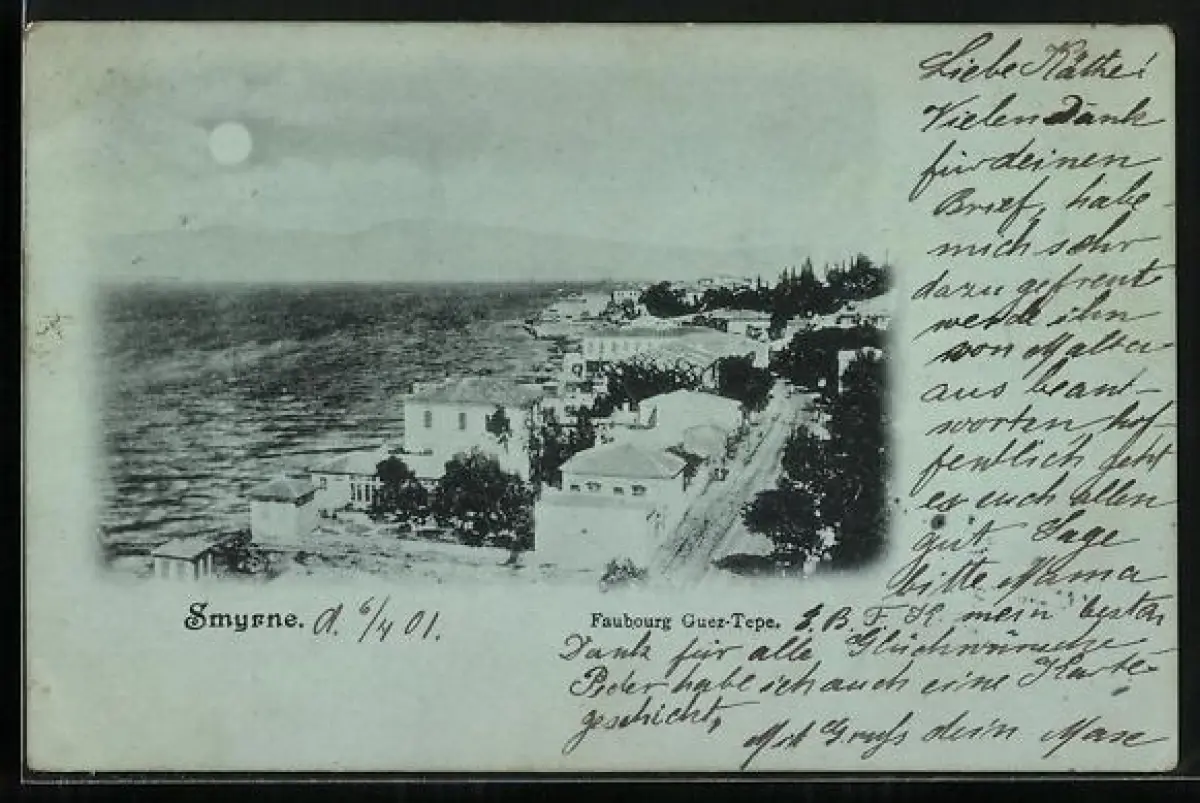 Liebe Käthe!
Vielen Dank
für deinen
Brief, habe
mich sehr
dazu gefreut
werde ihn
von Malta
aus beant-
worten hof-
fentlich geht
es euch allen
gut Sage
bitte Mama
Smyrne. d. 6/4 01.
Faubourg Guez-Tepe.
B. F. K. mein besten
Dank für alle Glückwünsche
Peder habe ich auch eine Karte
geschickt,
Mit Gruß dein Max